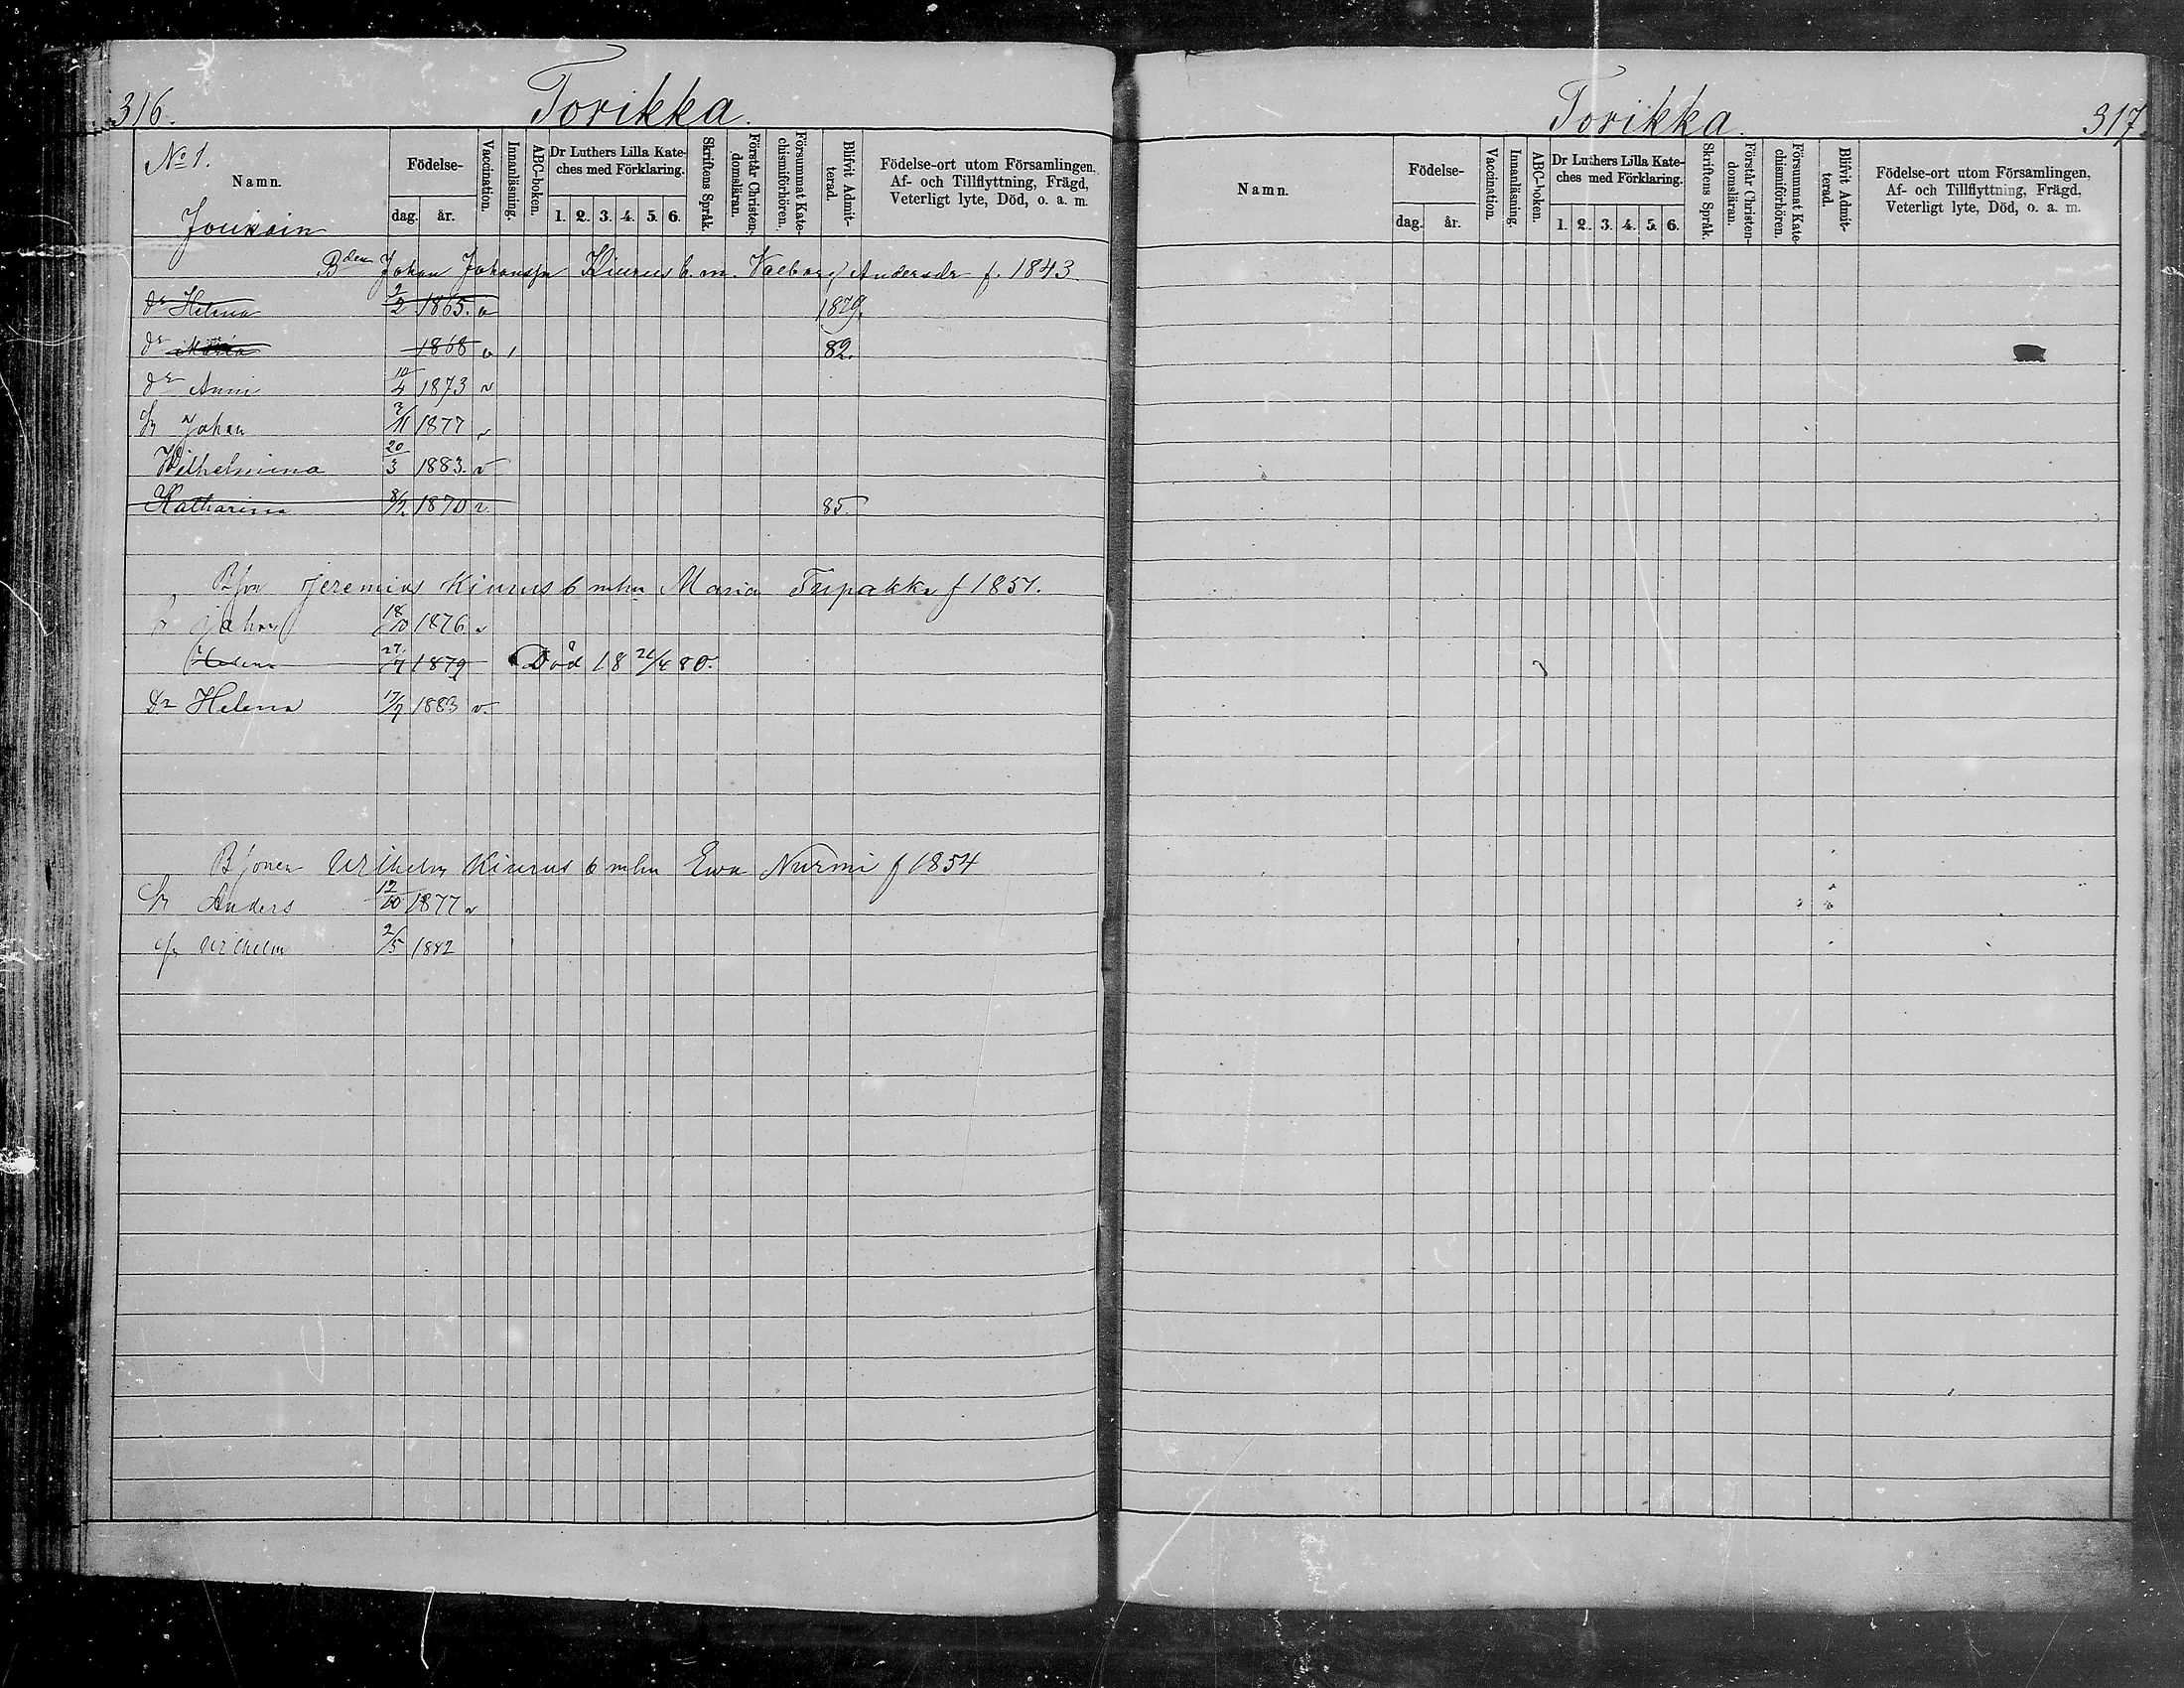 316.
Torikka.
No 1.
Namn.
Födelse-
dag.
år.
Vaccination.
Innanläsning.
ABC-boken.
Dr Luthers Lilla Kate-
ches med Förklaring.
1. 2. 3. 4. 5. 6.
Skriftens Språk.
Förstår Christen-
domsläran.
Försummat Kate-
chismiförhören.
Blifvit Admit-
terad.
Födelse-ort utom Församlingen,
Af- och Tillflyttning, Frägd,
Veterligt lyte, Död, o. a. m.
Jouksin
Bden Johan Johanss Kiurus b. m. Valborg Andersdr f. 1843
dr Helena 2/2 1865. v 1879.
dr Maria 1868 v 1 82.
dr Anni 10/4 1873 v
Johan 3/11 1877 v
Wilhelmina 20/3 1883. v
Katharina 8/7 1870 v 85.
Jeremias Kiurus b mhu Maria Tupakka f 1851.
Johan 18/10 1876 v
Helena 27/7 1879 Död 18 21/4 80.
Dr Helena 17/7 1883 v.
Bsonen Wilhelm Kiurus b mhu Ewa Nurmi f 1854
Anders 12/10 1877 v
Wilhelm 2/5 1882
Torikka.
317.
Namn.
Födelse-
dag.
år.
Vaccination.
Innanläsning.
ABC-boken.
Dr Luthers Lilla Kate-
ches med Förklaring.
1. 2. 3. 4. 5. 6.
Skriftens Språk.
Förstår Christen-
domsläran.
Försummat Kate-
chismiförhören.
Blifvit Admit-
terad.
Födelse-ort utom Församlingen,
Af- och Tillflyttning, Frägd,
Veterligt lyte, Död, o. a. m.